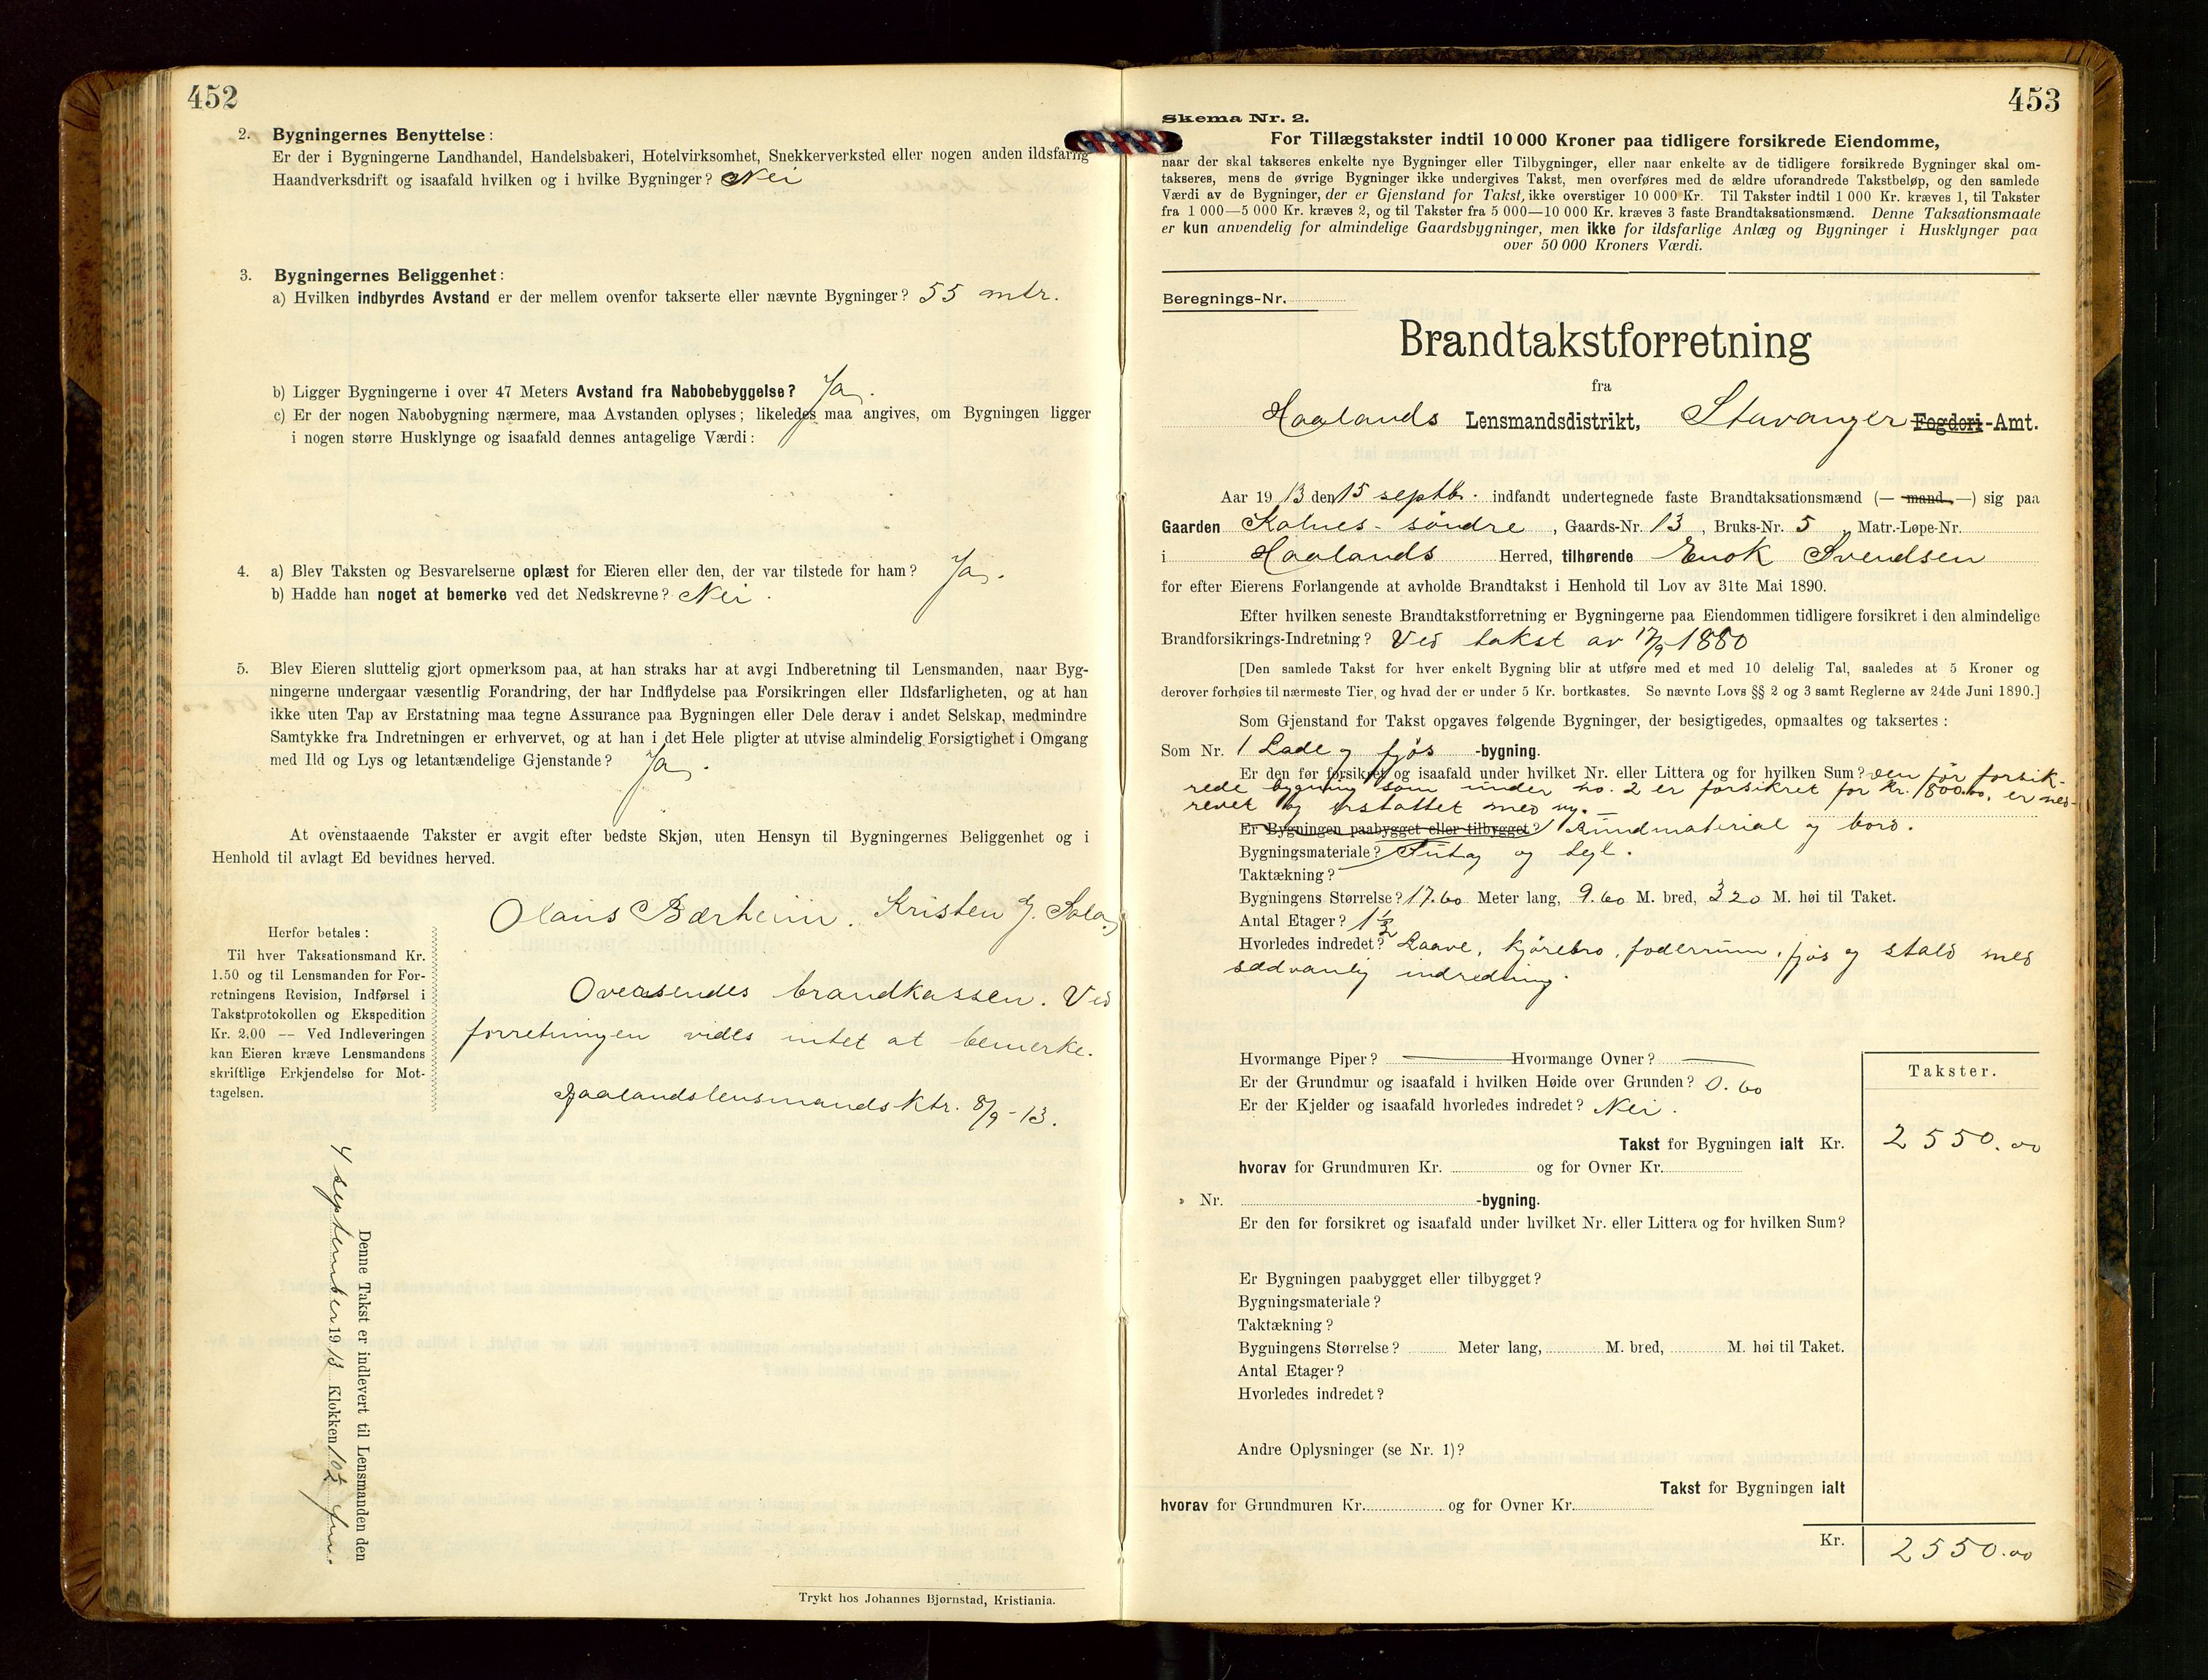 452
2. Bygningernes Benyttelse:
Er der i Bygningerne Landhandel, Handelsbakeri, Hotelvirksomhet, Snekkerverksted eller nogen anden ildsfarlig
Haandverksdrift og isaafald hvilken og i hvilke Bygninger? Nei
3. Bygningernes Beliggenhet:
a) Hvilken indbyrdes Avstand er der mellem ovenfor takserte eller nævnte Bygninger? 55 mtr.
b) Ligger Bygningerne i over 47 Meters Avstand fra Nabobebyggelse? Ja.
c) Er der nogen Nabobygning nærmere, maa Avstanden oplyses; likeledes maa angives, om Bygningen ligger
i nogen større Husklynge og isaafald dennes antagelige Værdi:
4. a) Blev Taksten og Besvarelserne oplæst for Eieren eller den, der var tilstede for ham? Ja.
b) Hadde han noget at bemerke ved det Nedskrevne? Nei.
5. Blev Eieren sluttelig gjort opmerksom paa, at han straks har at avgi Indberetning til Lensmanden, naar Byg-
ningerne undergaar væsentlig Forandring, der har Indflydelse paa Forsikringen eller Ildsfarligheten, og at han
ikke uten Tap av Erstatning maa tegne Assurance paa Bygningen eller Dele derav i andet Selskap, medmindre
Samtykke fra Indretningen er erhvervet, og at han i det Hele pligter at utvise almindelig Forsigtighet i Omgang
med Ild og Lys og letantændelige Gjenstande? Ja.
At ovenstaaende Takster er avgit efter bedste Skjøn, uten Hensyn til Bygningernes Beliggenhet og i
Henhold til avlagt Ed bevidnes herved.
Olaus Bærheim. Kristen J. Sola
Herfor betales:
Til hver Taksationsmand Kr.
1.50 og til Lensmanden for For-
retningens Revision, Indførsel i
Takstprotokollen og Ekspedition
Kr. 2.00 — Ved Indleveringen
kan Eieren kræve Lensmandens
skriftlige Erkjendelse for Mot-
tagelsen.
Oversendes brandkassen. Ved
forretningen vides intet at bemerke.
Haalandslensmandsktr. 8/9-13.
Denne Takst er indlevert til Lensmanden den
4 september 1913 Klokken 10½ fm.
Trykt hos Johannes Bjørnstad, Kristiania.
453
Skema Nr. 2.
For Tillægstakster indtil 10 000 Kroner paa tidligere forsikrede Eiendomme,
naar der skal takseres enkelte nye Bygninger eller Tilbygninger, eller naar enkelte av de tidligere forsikrede Bygninger skal om-
takseres, mens de øvrige Bygninger ikke undergives Takst, men overføres med de ældre uforandrede Takstbeløp, og den samlede
Værdi av de Bygninger, der er Gjenstand for Takst, ikke overstiger 10 000 Kr. Til Takster indtil 1 000 Kr. kræves 1, til Takster
fra 1 000—5 000 Kr. kræves 2, og til Takster fra 5 000—10 000 Kr. kræves 3 faste Brandtaksationsmænd. Denne Taksationsmaate
er kun anvendelig for almindelige Gaardsbygninger, men ikke for ildsfarlige Anlæg og Bygninger i Husklynger paa
over 50 000 Kroners Værdi.
Beregnings-Nr.
Brandtakstforretning
fra
Haalands Lensmandsdistrikt, Stavanger Fogderi-Amt.
Aar 1913 den 15 septb. indfandt undertegnede faste Brandtaksationsmænd (— mand —) sig paa
Gaarden Kolnes-søndre, Gaards-Nr. 13, Bruks-Nr. 5, Matr.-Løpe-Nr.
i Haalands Herred, tilhørende Enok Svendsen
for efter Eierens Forlangende at avholde Brandtakst i Henhold til Lov av 31te Mai 1890.
Efter hvilken seneste Brandtakstforretning er Bygningerne paa Eiendommen tidligere forsikret i den almindelige
Brandforsikrings-Indretning? Ved takst av 17/9 1880
[Den samlede Takst for hver enkelt Bygning blir at utføre med et med 10 delelig Tal, saaledes at 5 Kroner og
derover forhøies til nærmeste Tier, og hvad der er under 5 Kr. bortkastes. Se nævnte Lovs §§ 2 og 3 samt Reglerne av 24de Juni 1890.]
Som Gjenstand for Takst opgaves følgende Bygninger, der besigtigedes, opmaaltes og taksertes:
Som Nr. 1 Lade og fjøs -bygning.
Er den før forsikret og isaafald under hvilket Nr. eller Littera og for hvilken Sum? den før forsik-
rede bygning som under no. 2 er forsikret for kr. 1800.00, er ned-
revet og erstattet med ny.
Er Bygningen paabygget eller tilbygget? Bindmaterial og bord.
Bygningsmateriale? og tegl.
Taktækning?
Bygningens Størrelse? 17.60 Meter lang, 9.60 M. bred, 3.20 M. høi til Taket.
Antal Etager? 1½
Hvorledes indredet? Laave, kjørebro, foderrum, fjøs og stald med
sædvanlig indredning.
Hvormange Piper? — Hvormange Ovner? —
Er der Grundmur og isaafald i hvilken Høide over Grunden? 0.60
Er der Kjelder og isaafald hvorledes indredet? Nei.
Takster.
Takst for Bygningen ialt Kr. 2550.00
hvorav for Grundmuren Kr. og for Ovner Kr.
» Nr. -bygning.
Er den før forsikret og isaafald under hvilket Nr. eller Littera og for hvilken Sum?
Er Bygningen paabygget eller tilbygget?
Bygningsmateriale?
Taktækning?
Bygningens Størrelse? Meter lang, M. bred, M. høi til Taket.
Antal Etager?
Hvorledes indredet?
Andre Oplysninger (se Nr. 1)?
Takst for Bygningen ialt
hvorav for Grundmuren Kr. og for Ovner Kr.
Kr. 2550.00